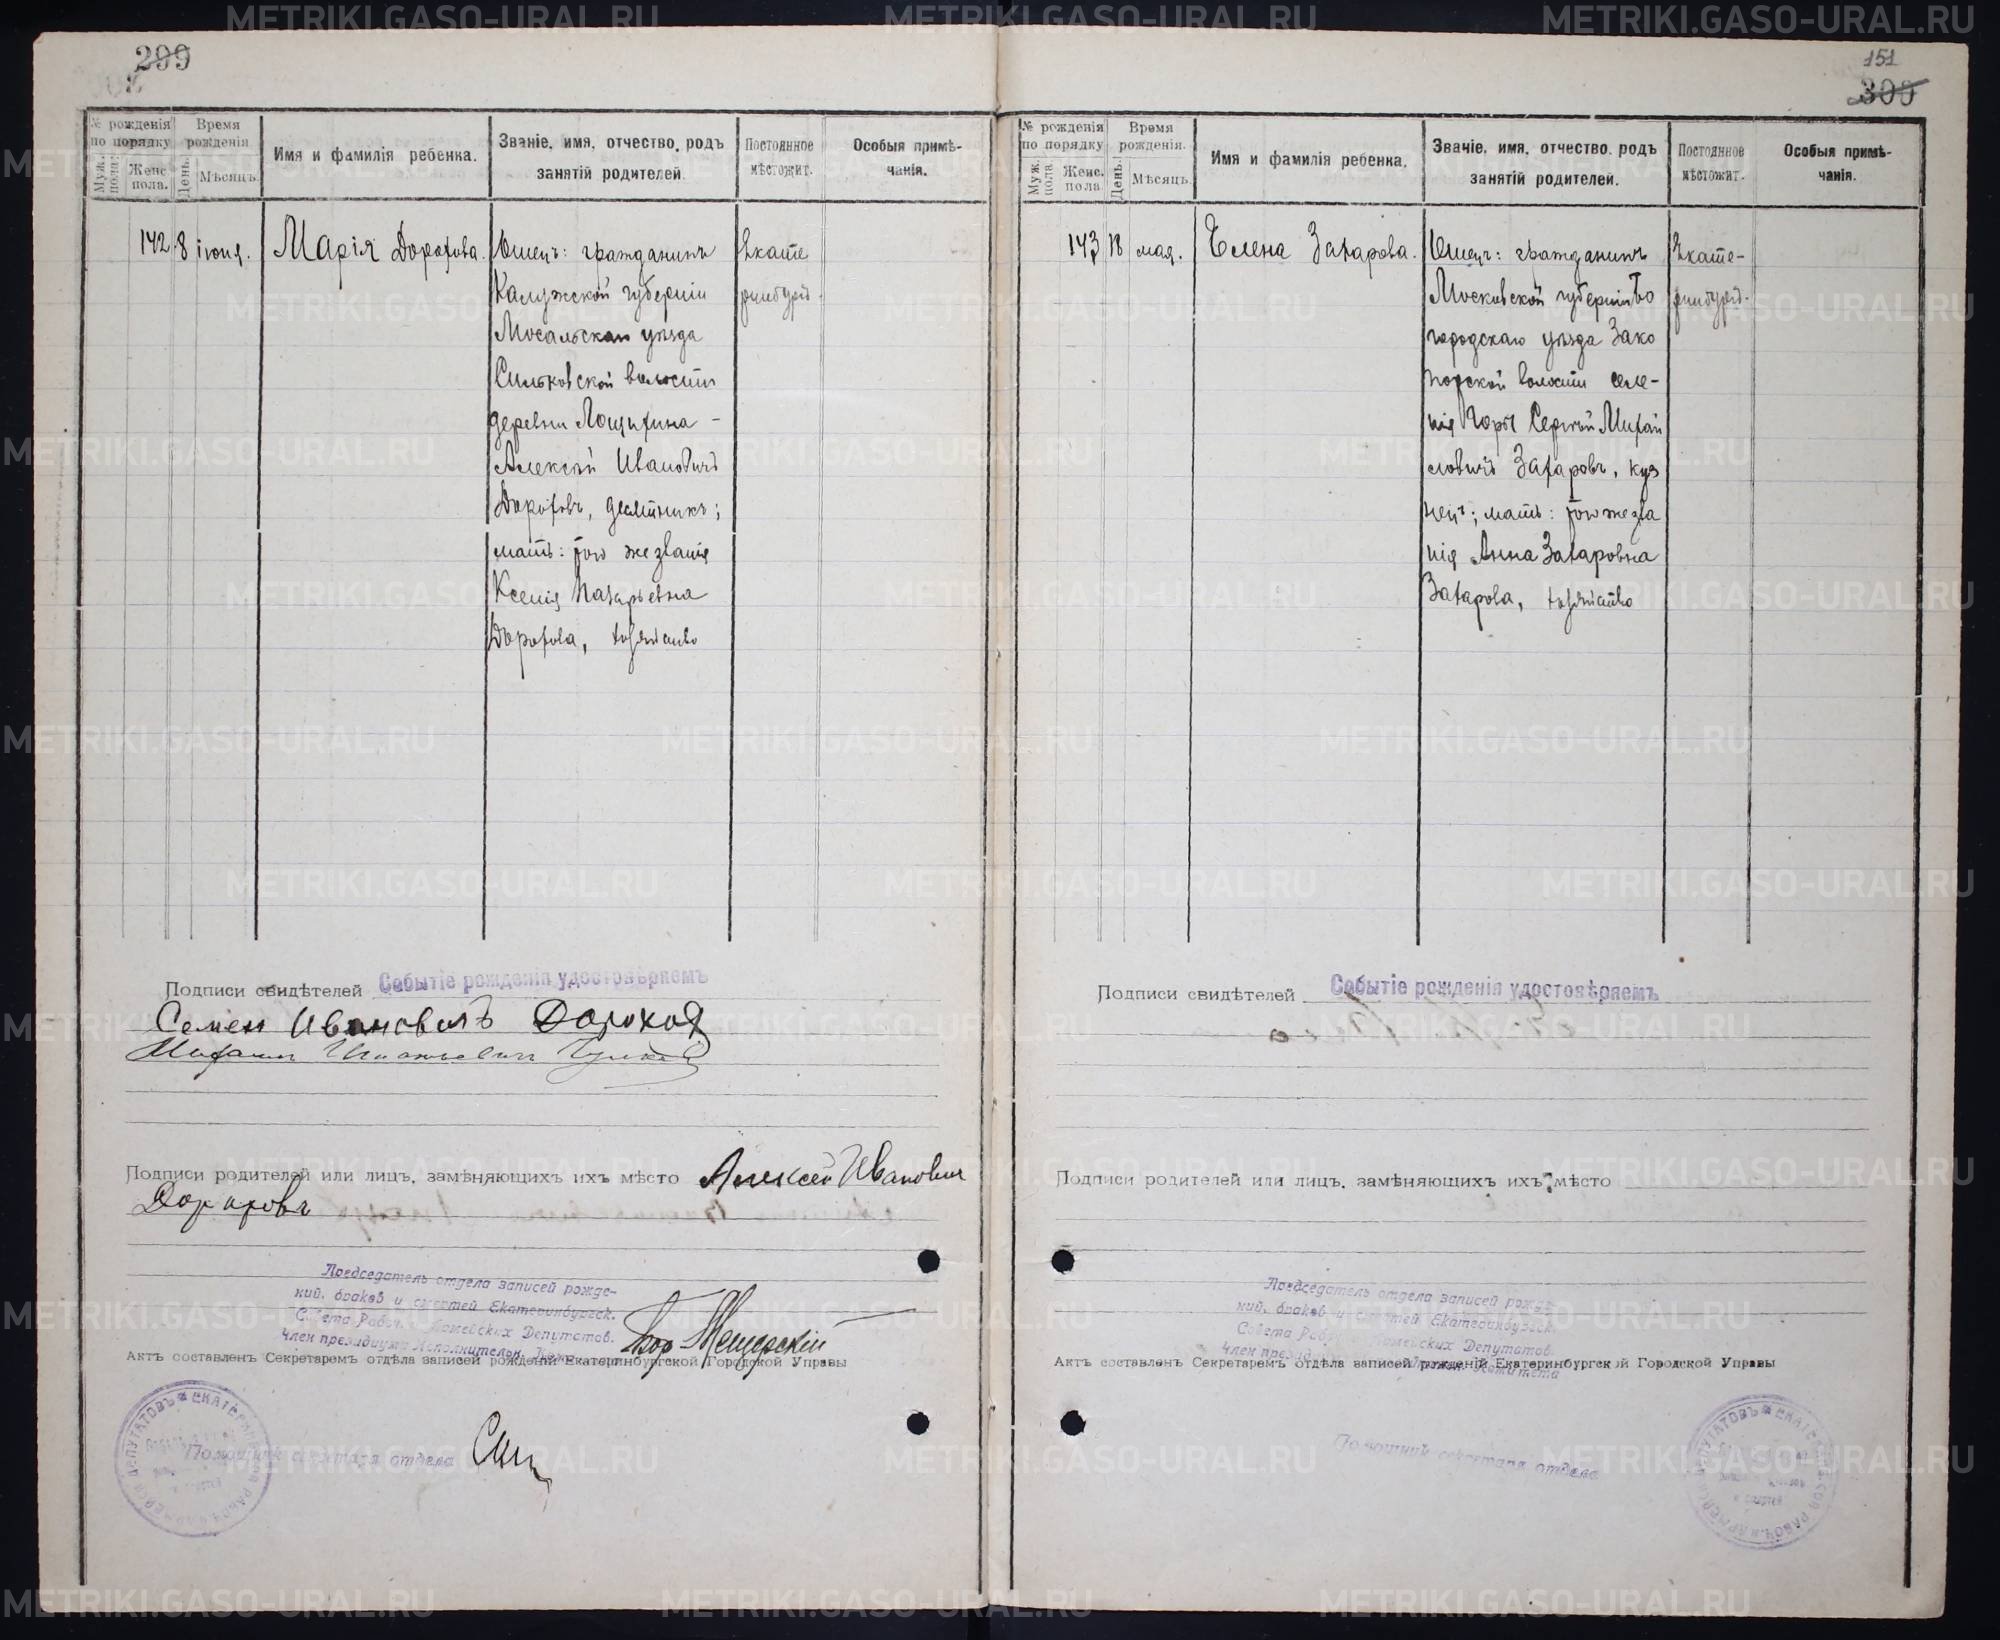 299
№ рожденія по порядку
Муж. пола.
Женс. пола.
Время рожденія
День.
Мѣсяцъ.
Имя и фамилія ребенка.
Званіе, имя, отчество, родъ
занятій родителей.
Постоянное
мѣстожит.
Особыя примѣ-
чанія.
142
8
іюня.
Марія Дорохова.
Отецъ: гражданинъ
Калужской губерніи
Мосальскаго уѣзда
Сильковской волости
деревни Лощихина -
Алексѣй Ивановичъ
Дороховъ, десятникъ;
мать: того же званія
Ксенія Назарьевна
Дорохова, хозяйство
Екате
ринбургъ.
Подписи свидѣтелей Событіе рожденія удостовѣряемъ
Семен Ивановичъ Дорохов
Михаил
Подписи родителей или лицъ, замѣняющихъ ихъ мѣсто Алексей Иванович
Дороховъ
Председатель отдела записей рожде-
ний, браков и смертей Екатеринбургск.
Совета Рабоч. и Армейских Депутатов.
Член президиума Исполнителон. Комитета
Актъ составленъ Секретаремъ отдѣла записей рожденій Екатеринбургской Городской Управы
Помощник секретаря отдела
151
300
№ рожденія по порядку
Муж. пола.
Женс. пола
Время рожденія.
День.
Мѣсяцъ.
Имя и фамилія ребенка.
Званіе, имя, отчество, родъ
занятій родителей.
Постоянное
мѣстожит.
Особыя примѣ-
чанія.
143
18
мая.
Елена Захарова.
Отецъ: гражданинъ
Московской губерніи Бо
городскаго уѣзда Запо
норской волости селе-
нія Горы Сергѣй Михай
ловичъ Захаровъ, куз
нецъ; мать: того же зва
нія Анна Захаровна
Захарова, хозяйство
Екате-
ринбургъ.
Подписи свидѣтелей Событіе рожденія удостовѣряемъ
Подписи родителей или лицъ, замѣняющихъ ихъ мѣсто
Председатель отдела записей рожде-
ний, браков и смертей Екатеринбургск.
Совета Рабоч. и Армейских Депутатов.
Член президиума Исполнителон. Комитета
Актъ составленъ Секретаремъ отдѣла записей рожденій Екатеринбургской Городской Управы
Помощник секретаря отдела
METRIKI.GASO-URAL.RU